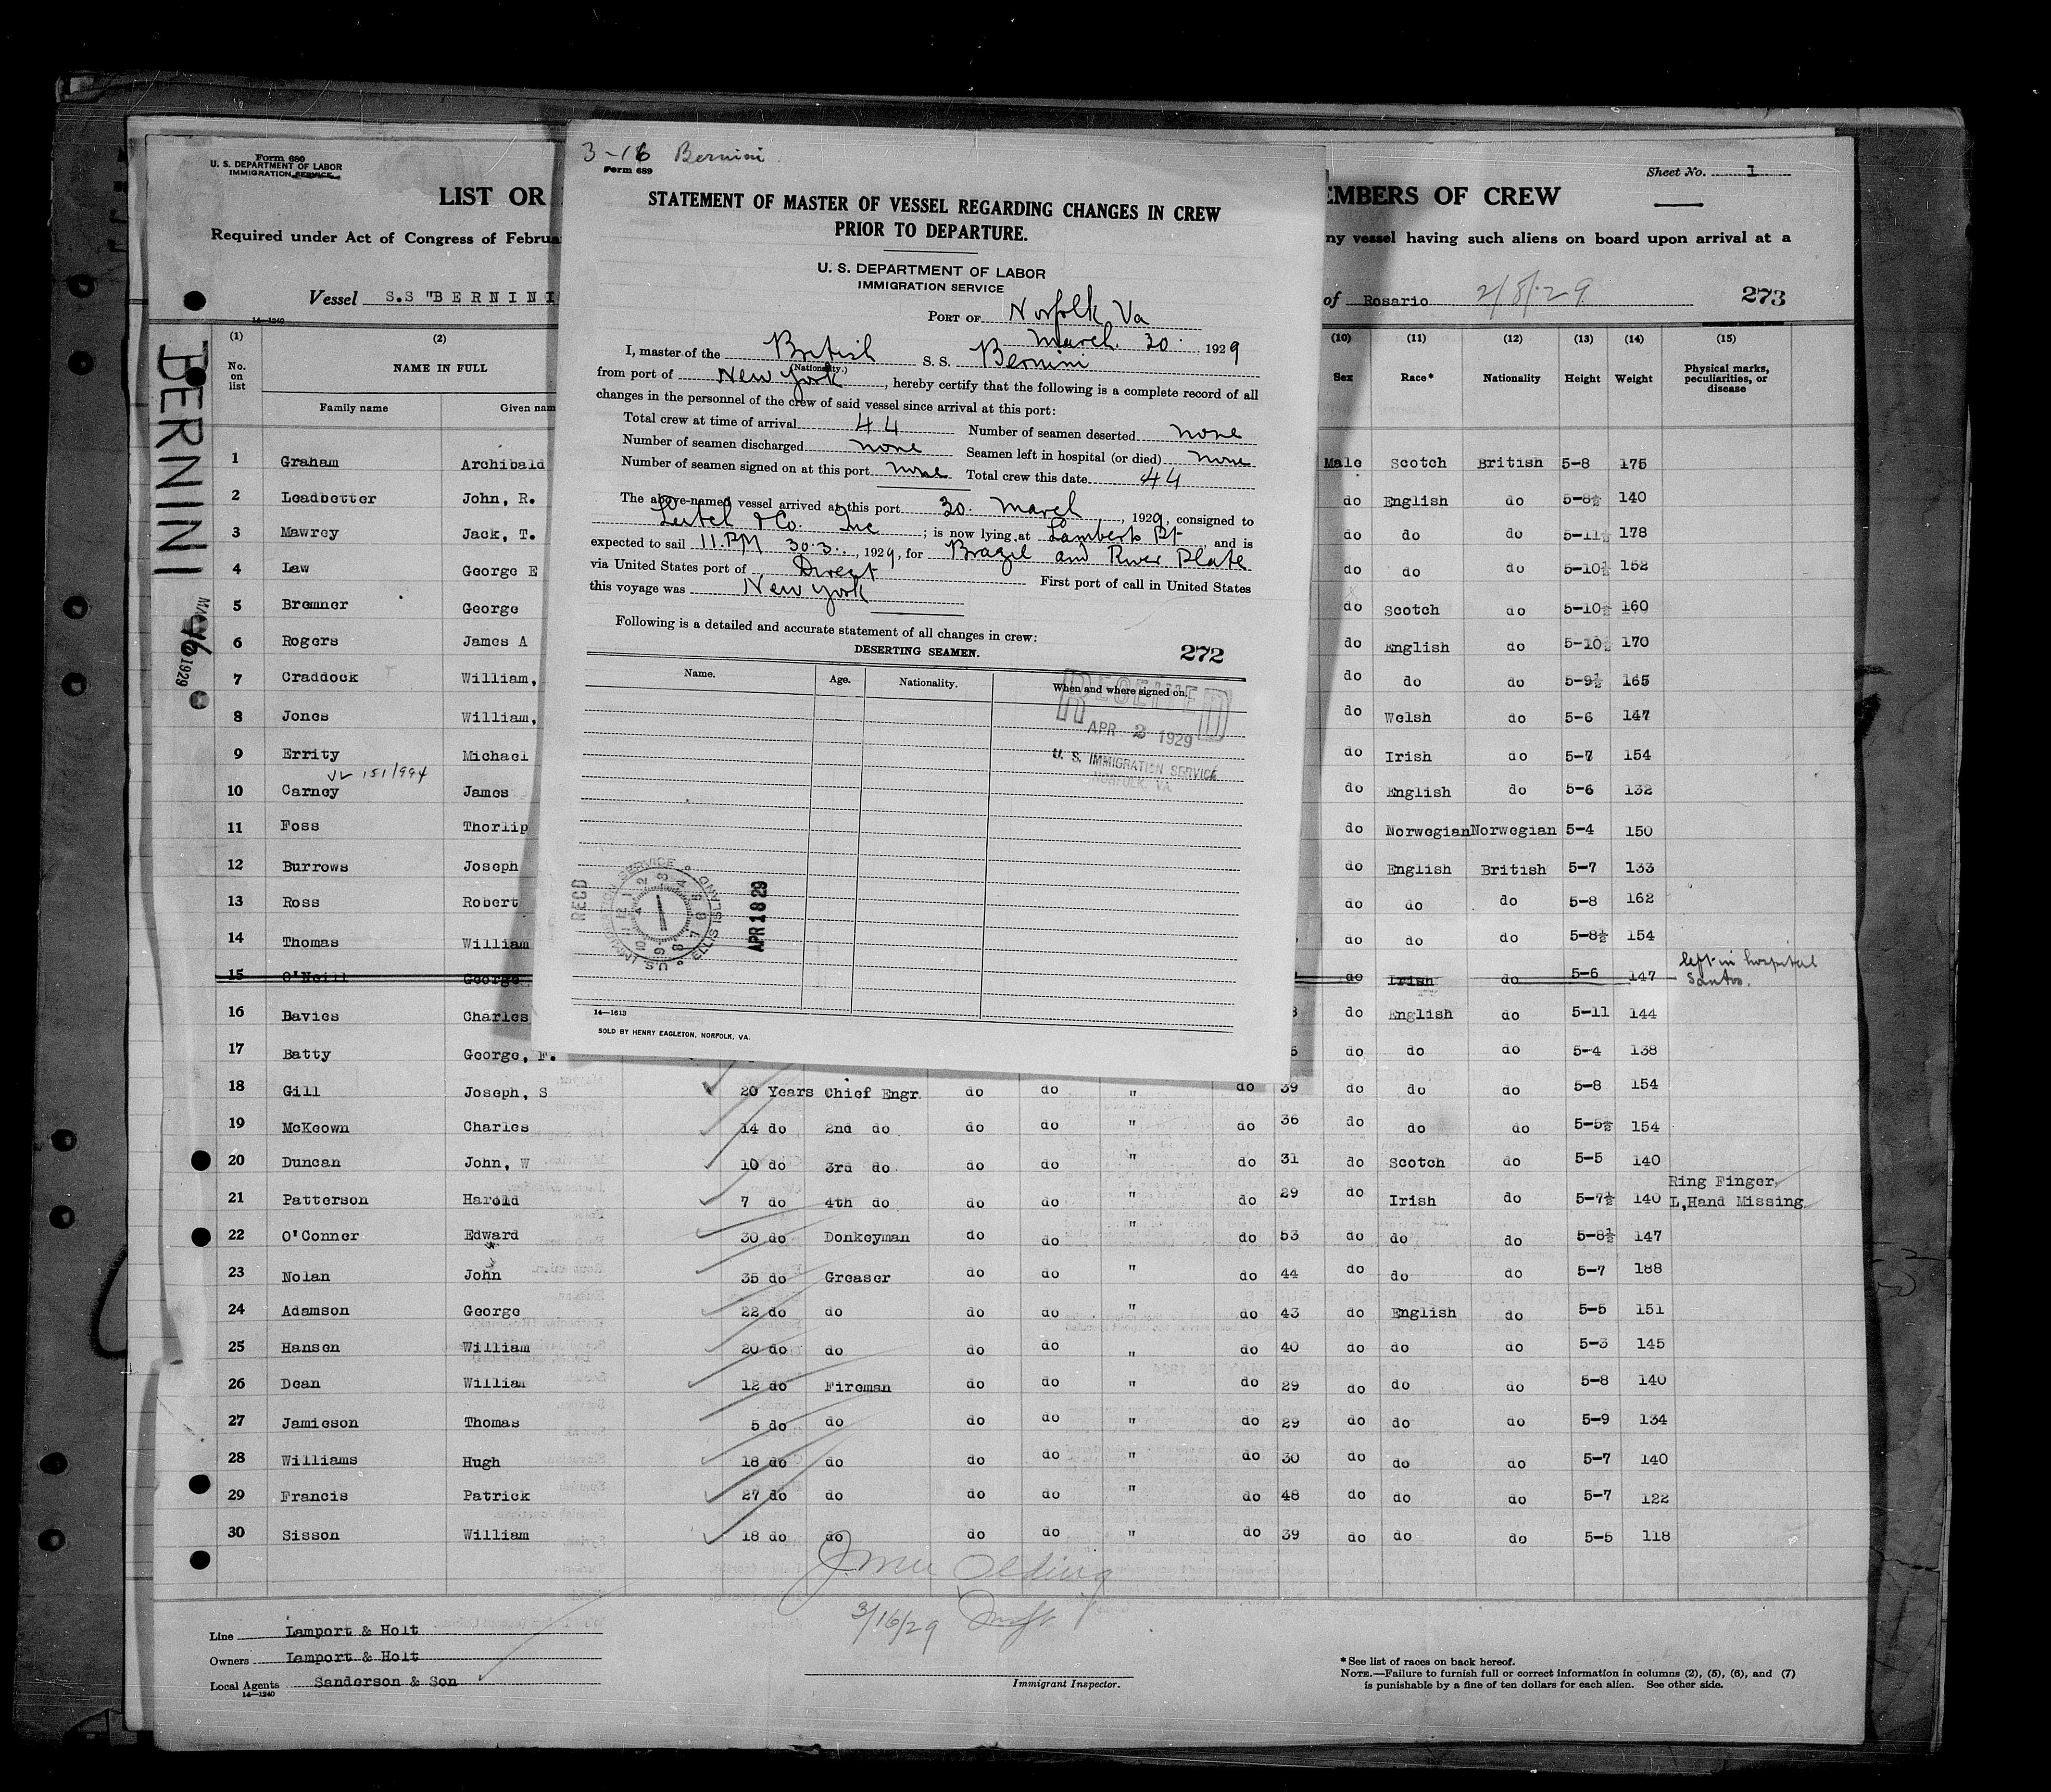 3-16 Bernini
Form 689
STATEMENT OF MASTER OF VESSEL REGARDING CHANGES IN CREW
PRIOR TO DEPARTURE.
U. S. DEPARTMENT OF LABOR
IMMIGRATION SERVICE
PORT OF Norfolk Va
March 30. , 1929
I, master of the British S. S. Bernini
(Nationality.)
from port of New York, hereby certify that the following is a complete record of all
changes in the personnel of the crew of said vessel since arrival at this port:
Total crew at time of arrival 44 Number of seamen deserted none
Number of seamen discharged none Seamen left in hospital (or died) none
Number of seamen signed on at this port none Total crew this date 44
The above-named vessel arrived at this port 30. March, 1929, consigned to
& Co. Inc ; is now lying at Lamberts Pt, and is
expected to sail 11.PM 30.3., 1929, for Brazil and River Plate
via United States port of Direct First port of call in United States
this voyage was New York
Following is a detailed and accurate statement of all changes in crew:
DESERTING SEAMEN. 272
Name. Age. Nationality. When and where signed on.
RECEIVED
APR 2 1929
U. S. IMMIGRATION SERVICE
NORFOLK, VA.
RECD
U.S. IMMIG. SERVICE ELLIS ISLAND
APR 18 29
14—1613
SOLD BY HENRY EAGLETON, NORFOLK, VA.
Form 680
U. S. DEPARTMENT OF LABOR
IMMIGRATION SERVICE
Sheet No. 1
LIST OR EMBERS OF CREW
Required under Act of Congress of Februa ny vessel having such aliens on board upon arrival at a
Vessel S.S "BERNINI of Rosario 2/8/29 273
14—1240
BERNINI
MAR 16 1929
(1) (2) (10) (11) (12) (13) (14) (15)
No. on list NAME IN FULL Sex Race* Nationality Height Weight Physical marks, peculiarities, or disease
Family name Given nam
1 Graham Archibald Male Scotch British 5-8 175
2 Leadbetter John, R. do English do 5-8½ 140
3 Mawrey Jack, T. do do do 5-11½ 178
4 Law George E do do do 5-10½ 152
5 Bremner George do Scotch do 5-10½ 160
6 Rogers James A do English do 5-10½ 170
7 Craddock William, do do do 5-9½ 165
8 Jones William, do Welsh do 5-6 147
9 Errity Michael do Irish do 5-7 154
151/994
10 Carney James do English do 5-6 132
11 Foss Thorlip do Norwegian Norwegian 5-4 150
12 Burrows Joseph do English British 5-7 133
13 Ross Robert do do do 5-8 162
14 Thomas William do do do 5-8½ 154
15 O'Neill George do Irish do 5-6 147 left in hospital Santos.
16 Davies Charles do English do 5-11 144
17 Batty George, F. do do do 5-4 138
18 Gill Joseph, S 20 Years Chief Engr. do do " do 39 do do do 5-8 154
19 McKeown Charles 14 do 2nd do do do " do 36 do do do 5-5½ 154
20 Duncan John, W 10 do 3rd do do do " do 31 do Scotch do 5-5 140
21 Patterson Harold 7 do 4th do do do " do 29 do Irish do 5-7½ 140 Ring Finger, L,Hand Missing
22 O'Conner Edward 30 do Donkeyman do do " do 53 do do do 5-8½ 147
23 Nolan John 35 do Greaser do do " do 44 do do do 5-7 188
24 Adamson George 22 do do do do " do 43 do English do 5-5 151
25 Hansen William 20 do do do do " do 40 do do do 5-3 145
26 Dean William 12 do Fireman do do " do 29 do do do 5-8 140
27 Jamieson Thomas 5 do do do do " do 29 do do do 5-9 134
28 Williams Hugh 18 do do do do " do 30 do do do 5-7 140
29 Francis Patrick 27 do do do do " do 48 do do do 5-7 122
30 Sisson William 18 do do do do " do 39 do do do 5-5 118
3/16/29
Line Lamport & Holt
Owners Lamport & Holt
Local Agents Sanderson & Son
14—1240
Immigrant Inspector.
*See list of races on back hereof.
NOTE.—Failure to furnish full or correct information in columns (2), (5), (6), and (7)
is punishable by a fine of ten dollars for each alien. See other side.